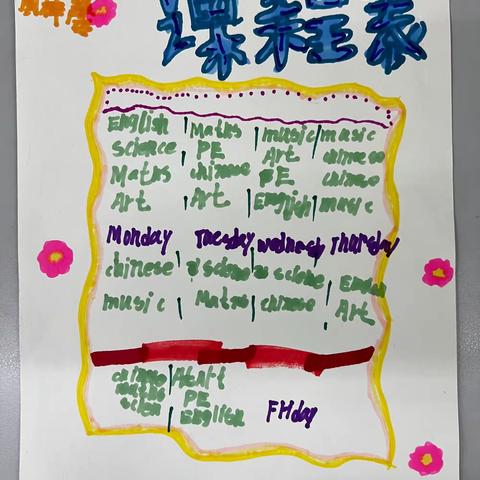 课程表
English Maths music music
science PE Art chinese
Maths chinese PE chinese
Art Art English music
Monday Tuesday wednesday Thursday
chinese science science English
music Maths chinese Art
chinese Art
maths PE
scien English
FHday